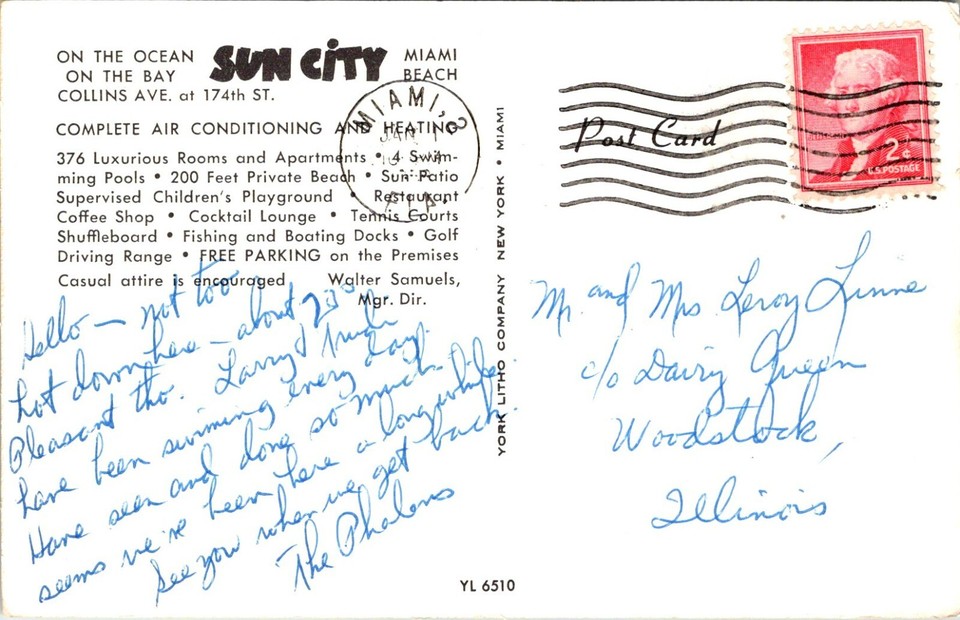 ON THE OCEAN
ON THE BAY
SUN CITY
MIAMI
BEACH
COLLINS AVE. at 174th ST.
COMPLETE AIR CONDITIONING AND HEATING
376 Luxurious Rooms and Apartments • 4 Swim-
ming Pools • 200 Feet Private Beach • Sun Patio
Supervised Children's Playground • Restaurant
Coffee Shop • Cocktail Lounge • Tennis Courts
Shuffleboard • Fishing and Boating Docks • Golf
Driving Range • FREE PARKING on the Premises
Casual attire is encouraged Walter Samuels,
Mgr. Dir.
Hello — not too
hot down here — about 73°
Pleasant tho. Larry & Trudi
have been swiming every day.
Have seen and done so much
seems we've been here a long while
See you when we get back.
The Phalens
YORK LITHO COMPANY NEW YORK • MIAMI
YL 6510
MIAMI,
JAN
FLA.
Post Card
2¢
U.S. POSTAGE
Mr. and Mrs Leroy Linne
c/o Dairy Queen
Woodstock,
Illinois